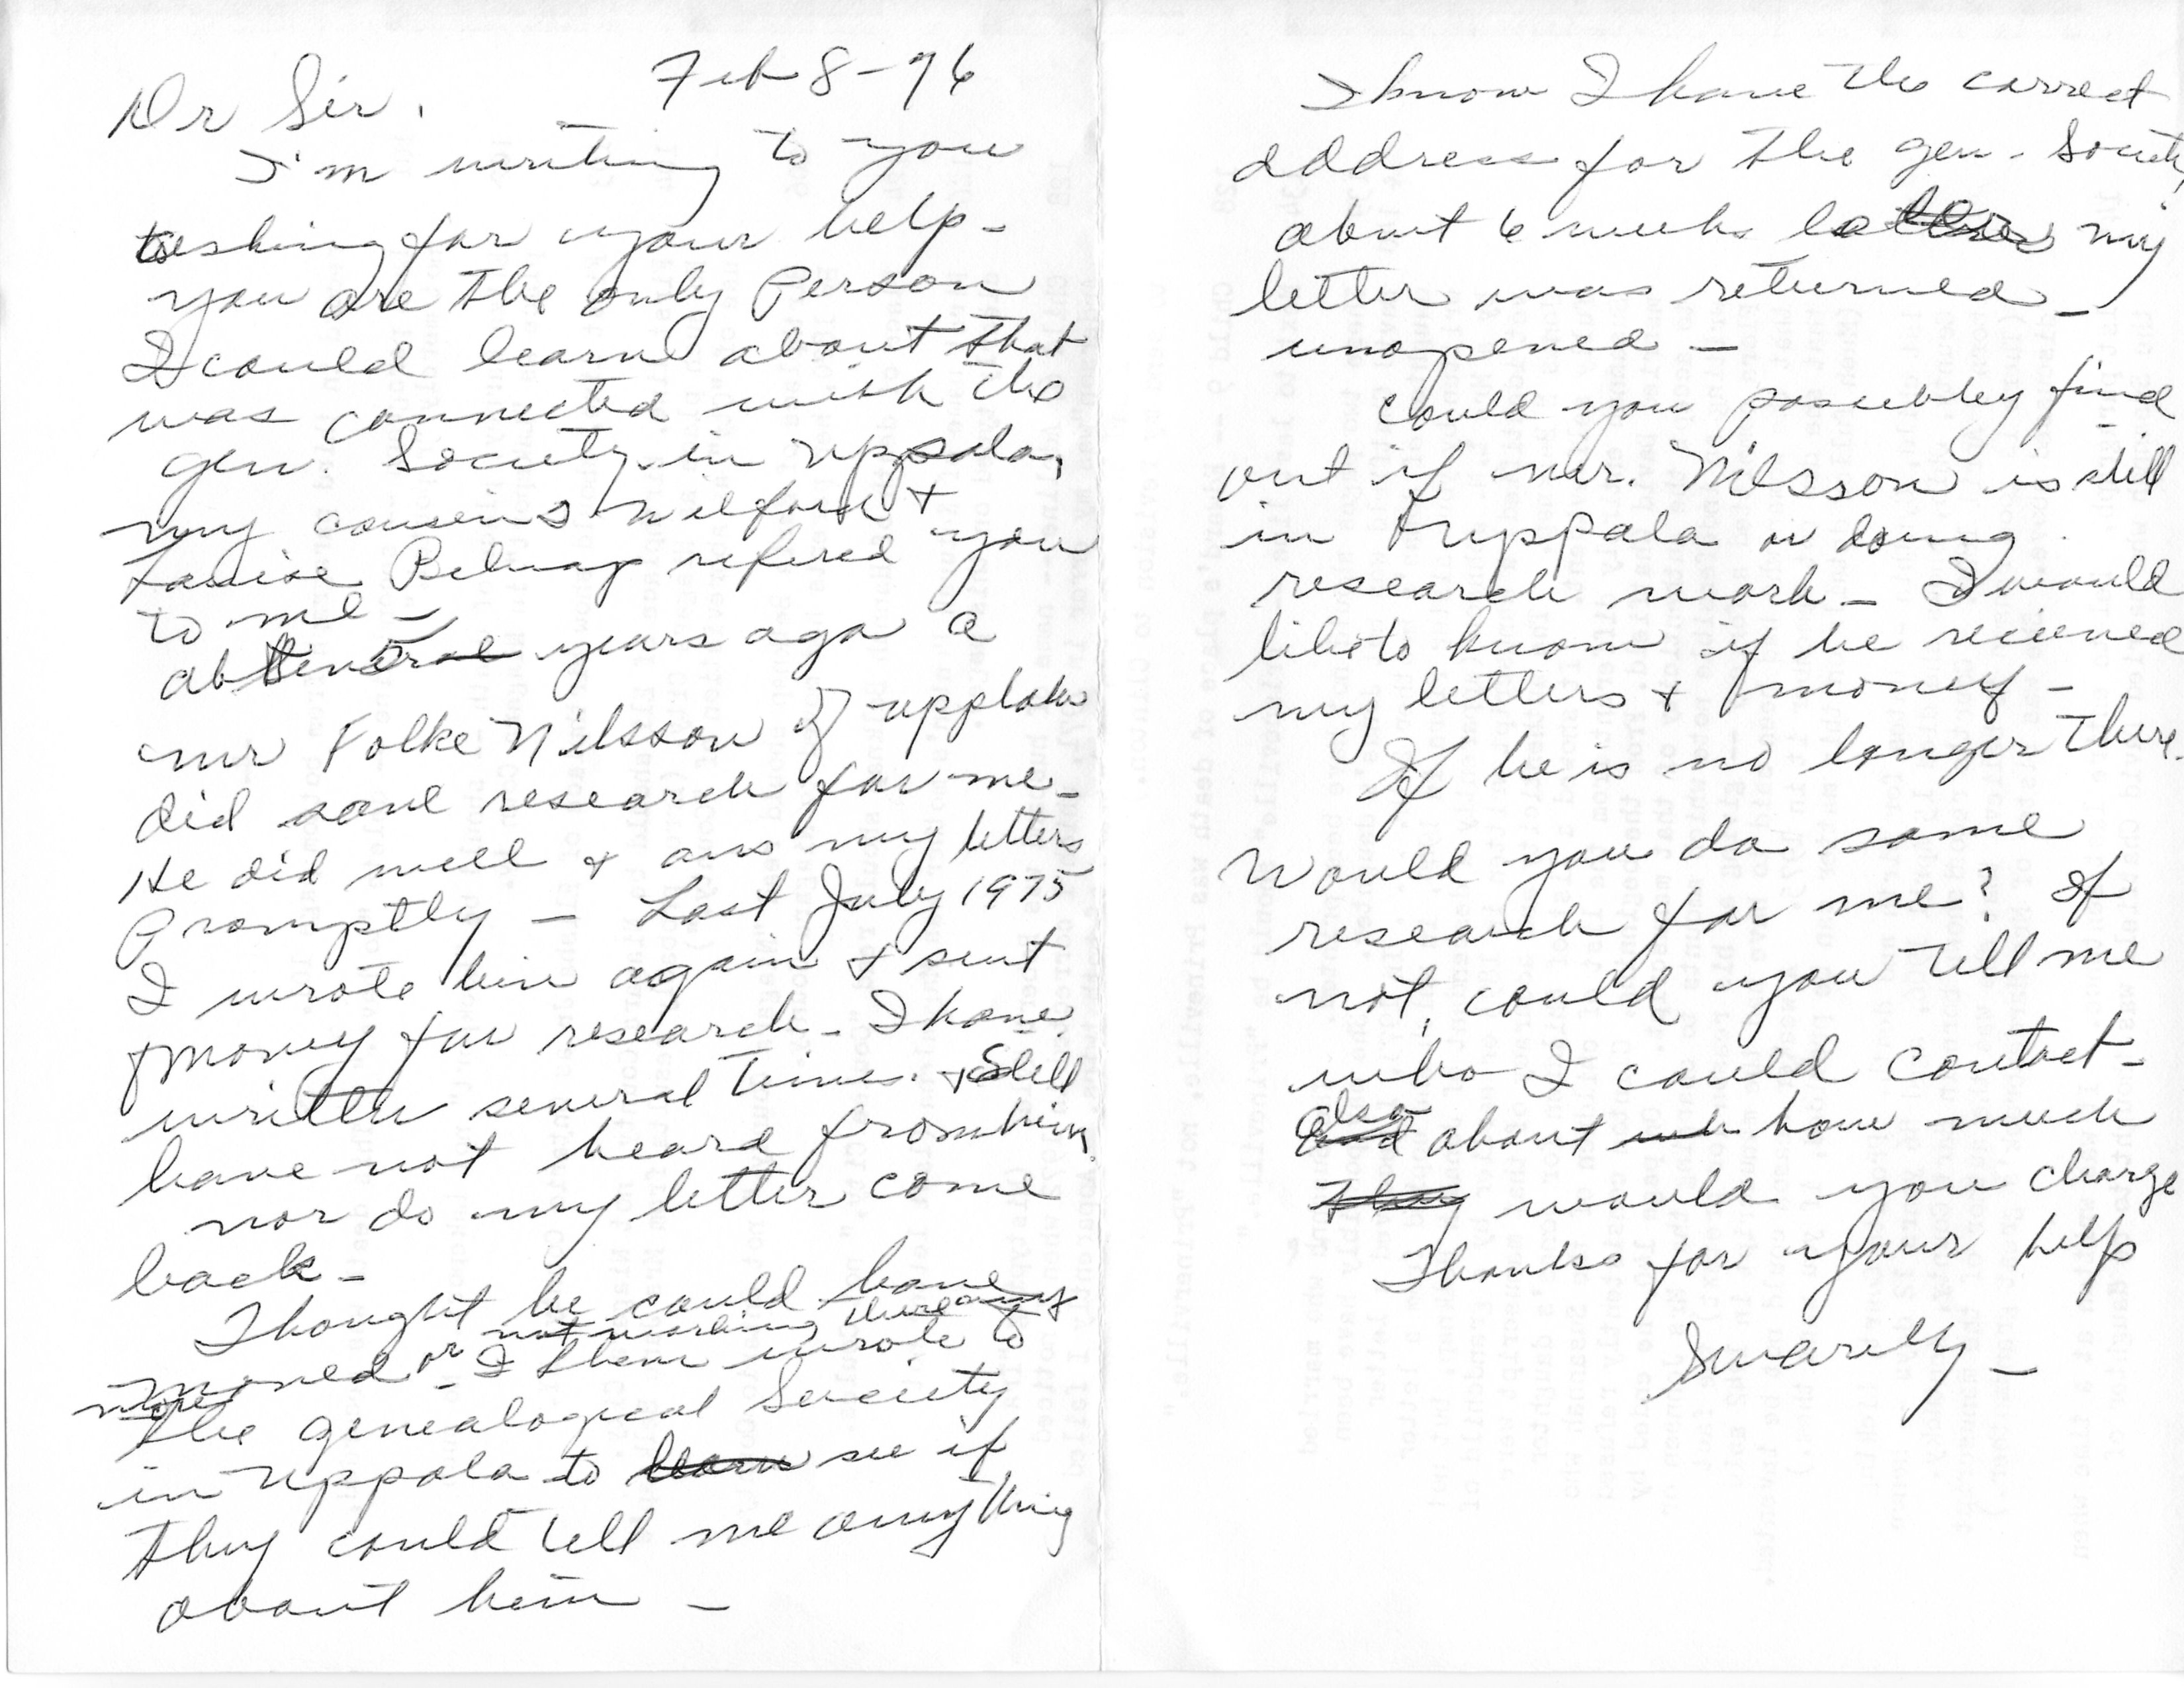 Feb 8-76
Dr Sir,
I'm writing to you
asking for your help -
you are the only Person
I could learn about that
was connected with the
gen. Society in Uppsala,
my cousins Wilford &
Louise refered you
to me -
ab 5 years ago a
mr Folke Nilsson of
did some research for me -
He did well & ans my letters
Promptly - Last July 1975
I wrote him again & sent
money for research - I have
written several times. & Still
have not heard from him
nor do my letter come
back -
Thought he could have
moved or not working there any
more - I then wrote to
the genealogical Society
in Uppala to learn see if
they could tell me anything
about him -
I know I have the correct
address for the gen - Society
about 6 weeks later my
letter was returned -
unopened -
Could you possibley find
out if mr. Nilsson is still
in Uppala or doing
research work - I would
like to know if he recieved
my letters & money -
If he is no longer there.
Would you do some
research for me? If
not, could you tell me
who I could contact -
also about how much
they would you charge
Thanks for your help
Sincerely -